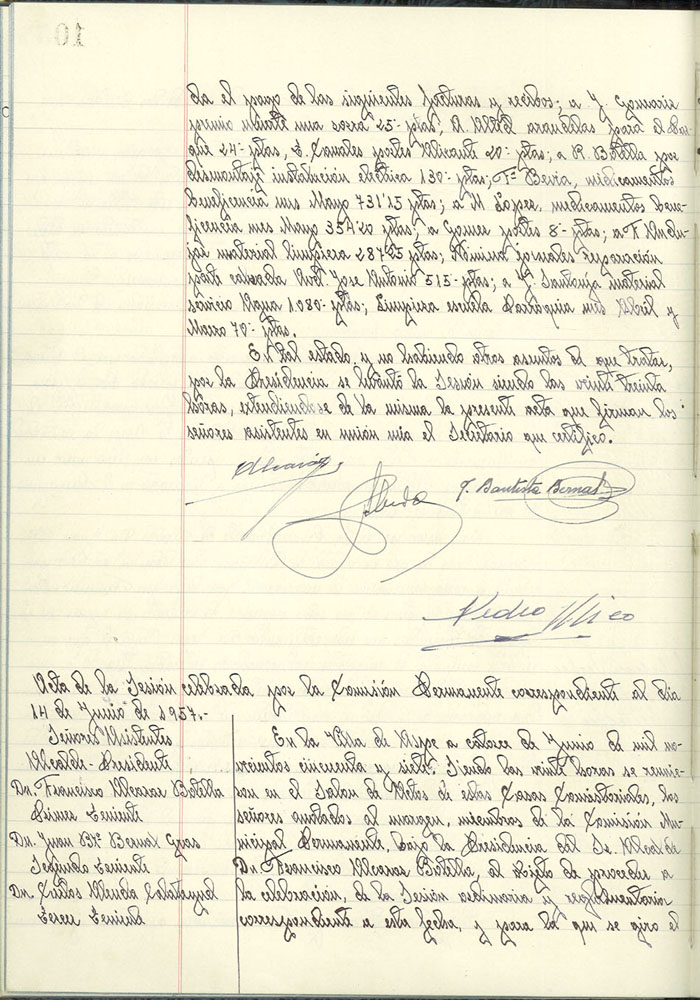 da el pago de las siguientes facturas y recibos; a J. Gomariz
premio morir una zorra 25'- ptas, A. Alted arandelas para el Par
que 24'- ptas, E. Canales portes Alicante 20'- ptas; a R. Botella por
desmontaje instalación electrica 130'- ptas; Fª Beviá, medicamentos
beneficencia mes Mayo 731'15 ptas; a M. Lopez, medicamentos bene-
ficencia mes Mayo 354'20 ptas; a Gomez portes 8'- ptas; a F.
material limpieza 287'25 ptas; Nómina jornales reparación
parte calzada Avd. Jose Antonio 515'- ptas; a J. Santonja material
servicio Agua 1.080'- ptas; Limpieza escuela Parroquia mes Abril y
Marzo 70'- ptas.
En tal estado, y no habiendo otros asuntos de que tratar,
por la Presidencia se levantó la Sesión siendo las veinte treinta
horas, extendiendose de la misma la presente acta que firman los
señores asistentes en unión mia el Secretario que certifico.
Alcaraz
Almeda J. Bautista Bernal
Pedro Mico
Acta de la Sesión celebrada por la Comisión Permanente correspondiente al dia
14 de Junio de 1957.-
Señores Asistentes
Alcalde-Presidente
Dn. Francisco Alcaraz Botella
Primer Teniente
Dn. Juan Bta. Bernal Gras
Segundo Teniente
Dn. Carlos Almeda Calatayud
Tercer Teniente
En la Villa de Aspe a catorce de Junio de mil no-
vecientos cincuenta y siete. Siendo las veinte horas se reunie-
ron en el Salon de Actos de estas Casas Consistoriales, los
señores anotados al margen, miembros de la Comisión Mu-
nicipal Permanente, bajo la Presidencia del Sr. Alcalde
Dn. Francisco Alcaraz Botella, al objeto de proceder a
la celebración, de la Sesión ordinaria y reglamentaria
correspondiente a esta fecha, y para la que se giro el